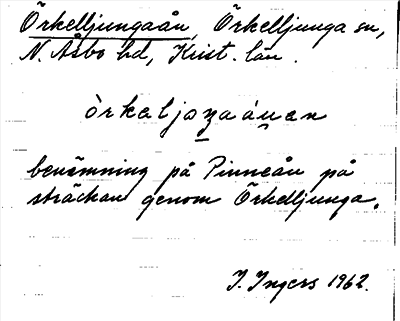 Örkelljungaån, Örkelljunga sn,
N. Åsbo hd, Krist. län.
benämning på Pinneån på
sträckan genom Örkelljunga.
I. Ingers 1962.